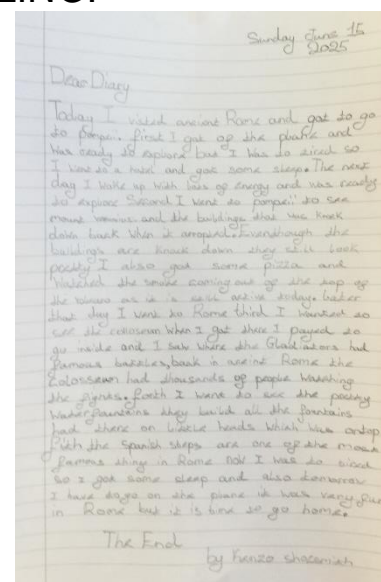 Sunday June 15
2025
Dear Diary
Today I visted ancient Rome and got to go
to Pompeii. first I got of the plane and
was ready to explore but I was to tired so
I went to a hotel and got some sleep. The next
day I woke up with lots of energy and was ready
to explore Second I went to pompeii to see
mount and the buildings that was knock
down back when it Eventhough the
buildings are knock down they still look
pretty I also got some pizza and
watched the smoke coming out of the top of
the as it is still active today. later
that day I went to Rome third I wanted to
see the colosseum When I got there I payed to
go inside and I saw where the Gladiators had
famous battles, back in Rome the
Colosseum had thousands of people watching
the fights. forth I went to see the pretty
water fountains they build all the fountains
had there on little heads which was ontop
the Spanish steps are one of the most
famous thing in Rome now I was to tired
so I got some sleep and also tomorrow
I have to go on the plane it was very fun
in Rome but it is time to go home.
The End
by Kenzo